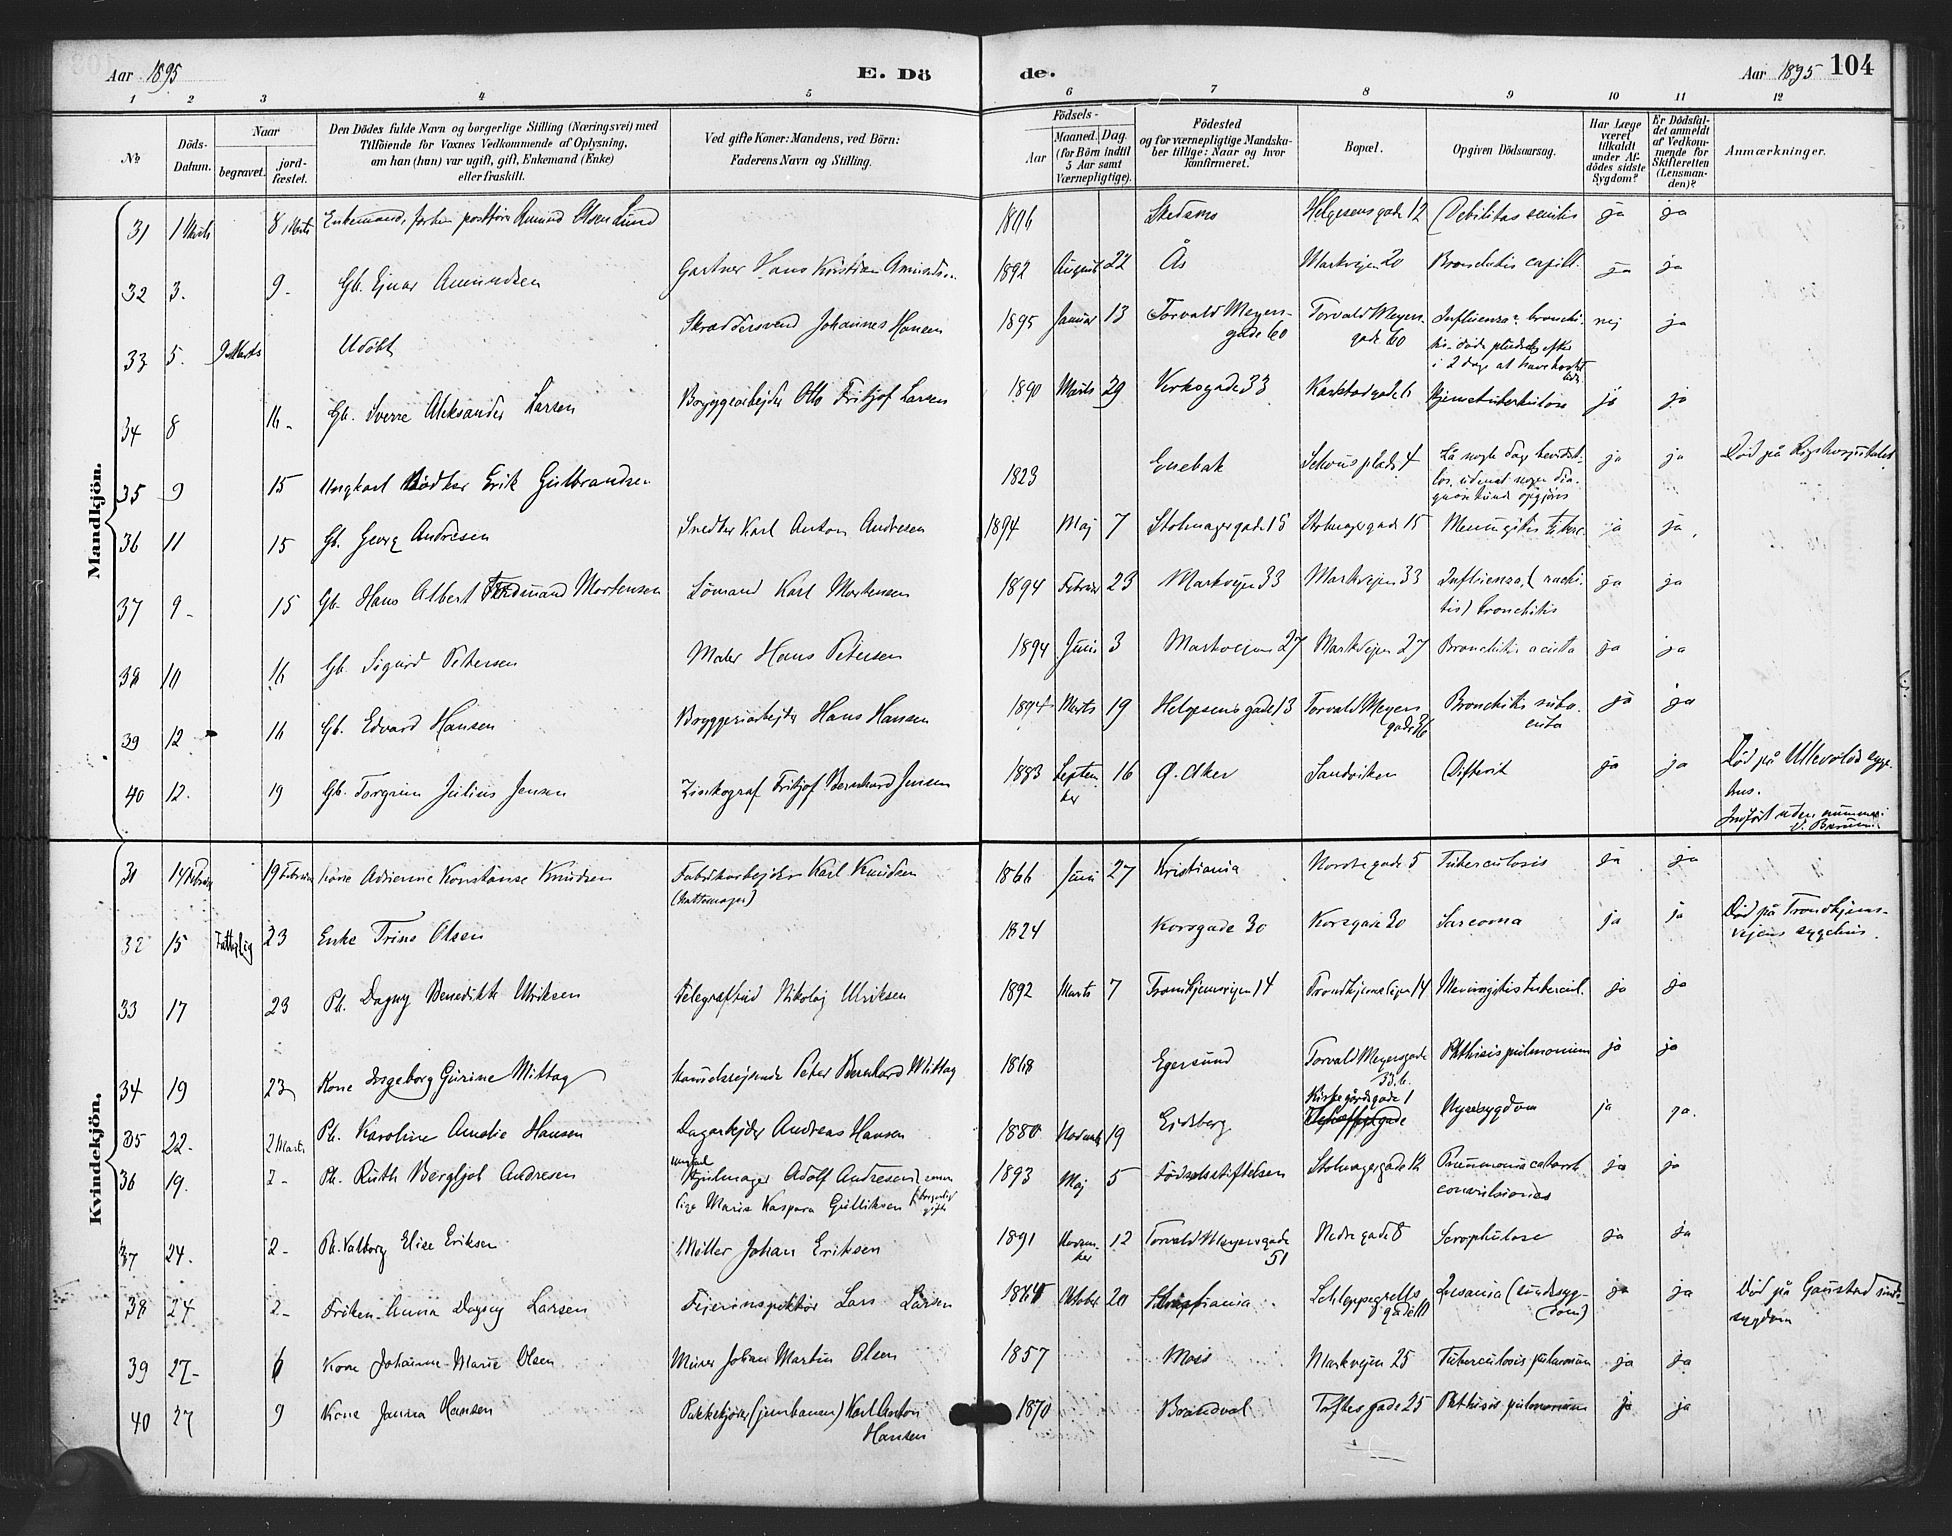 Aar 1895 E. Dö de. Aar 1895 104
1 2 3 4 5 6 7 8 9 10 11 12
No
Döds-Datum.
Naar
begravet.
jord-fæstet.
Den Dödes fulde Navn og borgerlige Stilling (Næringsvei) med
Tilföiende for Voxnes Vedkommende af Oplysning,
om han (hun) var ugift, gift, Enkemand (Enke)
eller fraskilt.
Ved gifte Koner: Mandens, ved Börn:
Faderens Navn og Stilling.
Födsels-
Aar
Maaned. Dag.
(for Börn indtil
5 Aar samt
Værnepligtige).
Födested
og for værnepligtige Mandska-
ber tillige: Naar og hvor
konfirmeret.
Bopæl.
Opgiven Dödsaarsag.
Har Læge
været
tilkaldt
under Af-
dödes sidste
Sygdom?
Er Dödsfal-
det anmeldt
af Vedkom-
mende for
Skifteretten
(Lensman-
den)?
Anmærkninger.
Mandkjön.
31 1 Marts 8 Marts Enkemand, Amund Olsen Lund Skedsmo Helgesens gade 12 Debilitas senilis ja ja
32 3. 9- Gb. Ejnar Amundsen Gartner Hans Kristian Amundsen 1892 August 22 Ås Markvejen 20 Bronchitis capill. ja ja
33 5. 9 Marts Udöbt Skræddersvend Johannes Hansen 1895 Januar 13 Torvald Meyers-
gade 60 Torvald Meyers
gade 60 Influenza bronchi-
tis. döde pludselig efter
i 2 dage at have hostet nej ja
34 8 16- Gb. Sverre Aleksander Larsen Bryggearbejder Otto Fritjof Larsen 1890 Marts 29 Verksgade 33 Hjernetuberkulose ja ja
35 9 15 Ungkarl Bödker Erik Gulbrandsen 1823 Enebak Schous plads 4 Lå nogle dage bevidst-
lös, uden at nogen dia-
gnose kunde opgjöres ja ja Död på Rigshospitalet
36 11 15 Gb. Georg Andresen Snedker Karl Anton Andresen 1894 Maj 7 Stolmagergade 15 Stolmagergade 15 Meningitis tuberc. ja ja
37 9- 15 Gb. Hans Albert Ferdinand Mortensen Sömand Karl Mortensen 1894 Februar 23 Markvejen 33 Markvejen 33 Influenza, (rachi-
tis) bronchitis ja ja
38 10 16 Gb. Sigurd Petersen Maler Hans Petersen 1894 Juni 3 Markvejen 27 Markvejen 27 Bronchitis acuta ja ja
39 12 16 Gb. Edvard Hansen Bryggeriarbejder Hans Hansen 1894 Marts 19 Helgesens gade 13 Torvald Meyers
gade 36 Bronchitis suba-
cuta ja ja
40 12. 19 Gb. Torgrim Julius Jensen Zinkograf Fritjof Bernhard Jensen 1883 Septem-
ber 16 G. Aker Sandviken Difterit ja ja Död på Ullevold syge-
hus.
Indfört uden nummer i
V. Bærum.
Kvindekjön.
31 14 Februar 19 Februar Kone Adrienne Konstanse Knudsen Fabrikarbejder Karl Knudsen
(hattemager) 1866 Juni 27 Kristiania Nordre gade 5 Tuberculosis ja ja
32 15 Fattiglig 23 Enke Trine Olsen 1824 Korsgade 30 Korsgade 30 Sarcoma ja ja Död på Trondhjems-
vejens sygehus.
33 17 23 Pb. Dagny Benedikte Ulriksen Telegrafbud Nikolaj Ulriksen 1892 Marts 7 Trondhjemsvejen 14 Trondhjemsvejen 14 Meningitis tubercul. ja ja
34 19 23 Kone Ingeborg Gurine Mittag Handelsrejsende Peter Bernhard Mittag 1868 Egersund Torvald Meyersgade
33 b. Phthisis pulmonum ja ja
35 22. 2 Marts Pb. Karoline Amalie Hansen Dagarbejder Andreas Hansen 1880 Novemb. 19 Eidsberg Kirkegårdsgade 1 Nyresygdom ja ja.
36 19. 2- Pb. Ruth Bergljot Andresen ungkarl
Hjulmager Adolf Andresen
Marie Kaspara Gulliksen 1893 Maj 5 Födselsstiftelsen Stolmagergade 12 Pneumonia catarrh.
convulsiones ja ja
37 24. 2- Pb. Valborg Elise Eriksen Möller Johan Eriksen 1891 Novem-
ber 12 Torvald Meyersgade
51 Nedre gade 8 Scrophulose ja ja
38 24 2- Fröken Anna Dagny Larsen Feierinspektör Lars Larsen Oktober 20 Kristiania Schleppegrells
gade 10 Vesania (sindssyg-
dom) ja ja Död på Gaustad sinds-
sygdom
39 27- 6 Kone Johanne Marie Olsen Murer Johan Martin Olsen 1857 Moss Markvejen 25 Tuberculosis pulmonum ja ja
40 27 9 Kone Janna Hansen Pakkekjörer (jernbanen) Karl Anton
Hansen 1870 Brandval Toftes gade 25 Phthisis pulmonum ja ja